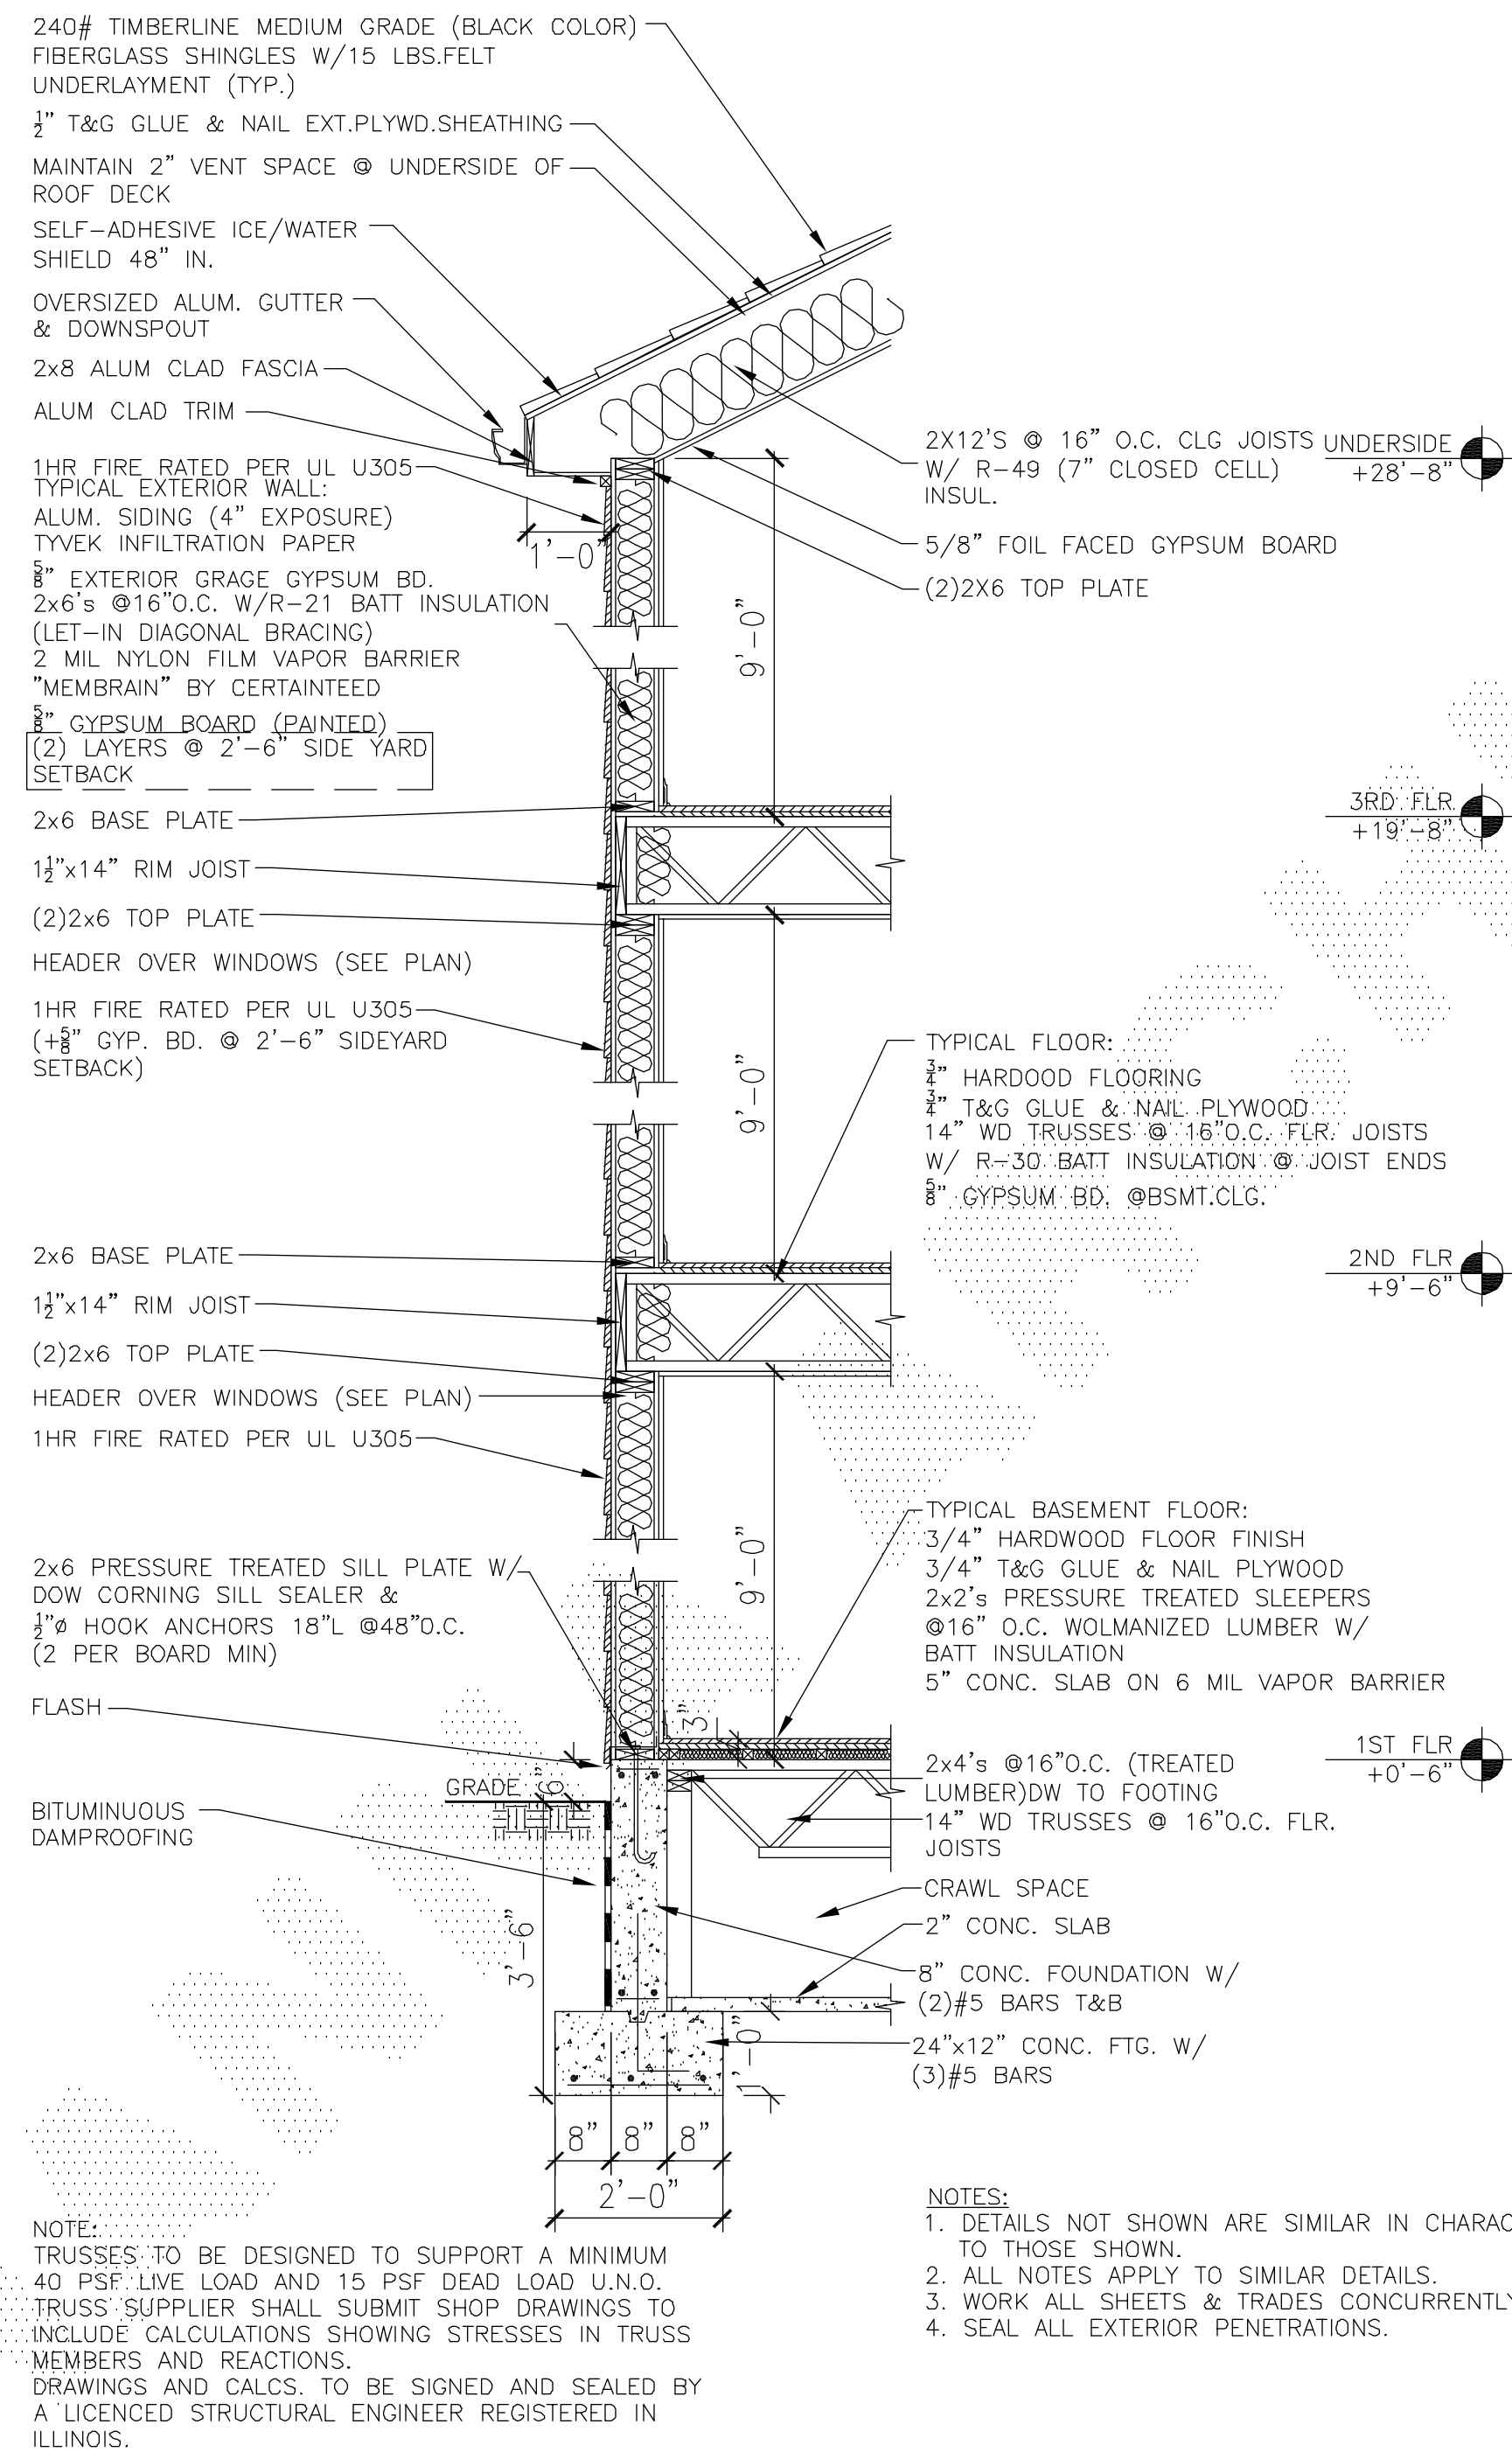 240# TIMBERLINE MEDIUM GRADE (BLACK COLOR)
FIBERGLASS SHINGLES W/15 LBS.FELT
UNDERLAYMENT (TYP.)
½" T&G GLUE & NAIL EXT.PLYWD.SHEATHING
MAINTAIN 2" VENT SPACE @ UNDERSIDE OF
ROOF DECK
SELF-ADHESIVE ICE/WATER
SHIELD 48" IN.
OVERSIZED ALUM. GUTTER
& DOWNSPOUT
2x8 ALUM CLAD FASCIA
ALUM CLAD TRIM
1HR FIRE RATED PER UL U305
TYPICAL EXTERIOR WALL:
ALUM. SIDING (4" EXPOSURE)
TYVEK INFILTRATION PAPER
⅝" EXTERIOR GRAGE GYPSUM BD.
2x6's @16"O.C. W/R-21 BATT INSULATION
(LET-IN DIAGONAL BRACING)
2 MIL NYLON FILM VAPOR BARRIER
"MEMBRAIN" BY CERTAINTEED
⅝" GYPSUM BOARD (PAINTED)
(2) LAYERS @ 2'-6" SIDE YARD
SETBACK
2x6 BASE PLATE
1½"x14" RIM JOIST
(2)2x6 TOP PLATE
HEADER OVER WINDOWS (SEE PLAN)
1HR FIRE RATED PER UL U305
(+⅝" GYP. BD. @ 2'-6" SIDEYARD
SETBACK)
2x6 BASE PLATE
1½"x14" RIM JOIST
(2)2x6 TOP PLATE
HEADER OVER WINDOWS (SEE PLAN)
1HR FIRE RATED PER UL U305
2x6 PRESSURE TREATED SILL PLATE W/
DOW CORNING SILL SEALER &
½"ø HOOK ANCHORS 18"L @48"O.C.
(2 PER BOARD MIN)
FLASH
GRADE
BITUMINUOUS
DAMPROOFING
1'-0"
9'-0"
9'-0"
9'-0"
3"
6"
3'-6"
1'-0"
8" 8" 8"
2'-0"
2X12'S @ 16" O.C. CLG JOISTS
W/ R-49 (7" CLOSED CELL)
INSUL.
UNDERSIDE
+28'-8"
5/8" FOIL FACED GYPSUM BOARD
(2)2X6 TOP PLATE
3RD FLR
+19'-8"
TYPICAL FLOOR:
¾" HARDOOD FLOORING
¾" T&G GLUE & NAIL PLYWOOD
14" WD TRUSSES @ 16"O.C. FLR. JOISTS
W/ R-30 BATT INSULATION @ JOIST ENDS
⅝" GYPSUM BD. @BSMT.CLG.
2ND FLR
+9'-6"
TYPICAL BASEMENT FLOOR:
3/4" HARDWOOD FLOOR FINISH
3/4" T&G GLUE & NAIL PLYWOOD
2x2's PRESSURE TREATED SLEEPERS
@16" O.C. WOLMANIZED LUMBER W/
BATT INSULATION
5" CONC. SLAB ON 6 MIL VAPOR BARRIER
1ST FLR
+0'-6"
2x4's @16"O.C. (TREATED
LUMBER)DW TO FOOTING
14" WD TRUSSES @ 16"O.C. FLR.
JOISTS
CRAWL SPACE
2" CONC. SLAB
8" CONC. FOUNDATION W/
(2)#5 BARS T&B
24"x12" CONC. FTG. W/
(3)#5 BARS
NOTE:
TRUSSES TO BE DESIGNED TO SUPPORT A MINIMUM
40 PSF LIVE LOAD AND 15 PSF DEAD LOAD U.N.O.
TRUSS SUPPLIER SHALL SUBMIT SHOP DRAWINGS TO
INCLUDE CALCULATIONS SHOWING STRESSES IN TRUSS
MEMBERS AND REACTIONS.
DRAWINGS AND CALCS. TO BE SIGNED AND SEALED BY
A LICENCED STRUCTURAL ENGINEER REGISTERED IN
ILLINOIS.
NOTES:
1. DETAILS NOT SHOWN ARE SIMILAR IN CHARAC
TO THOSE SHOWN.
2. ALL NOTES APPLY TO SIMILAR DETAILS.
3. WORK ALL SHEETS & TRADES CONCURRENTLY
4. SEAL ALL EXTERIOR PENETRATIONS.